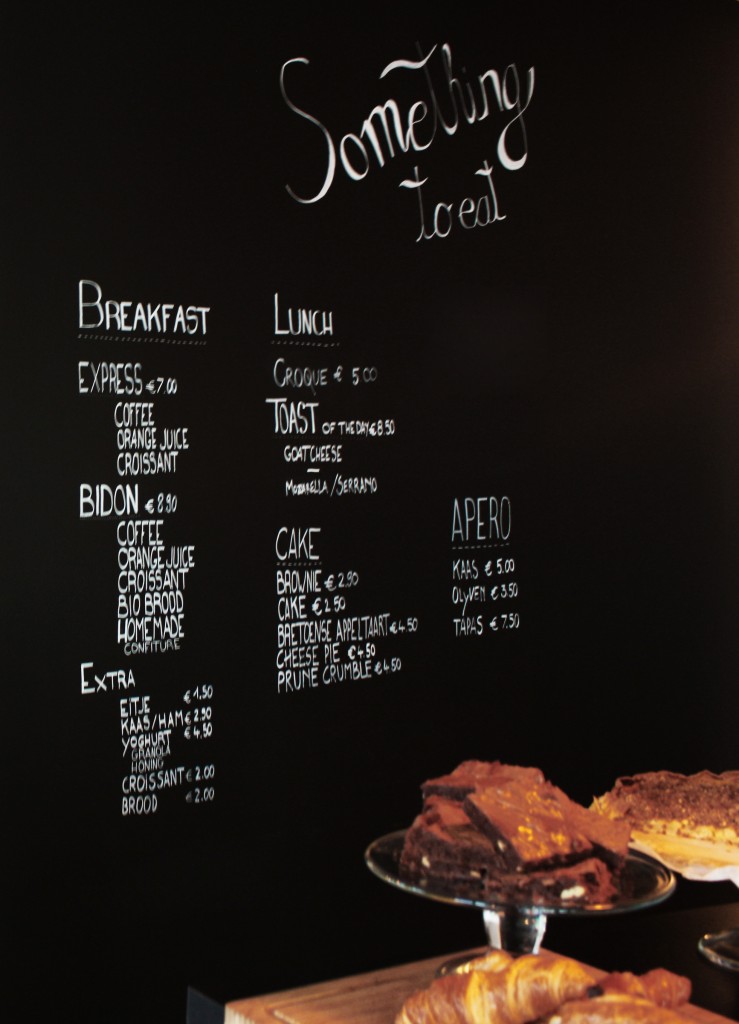 Something
to eat
BREAKFAST
EXPRESS €7.00
COFFEE
ORANGE JUICE
CROISSANT
BIDON €8.90
COFFEE
ORANGE JUICE
CROISSANT
BIO BROOD
HOMEMADE
CONFITURE
EXTRA
EITJE €1.50
KAAS/HAM €2.90
YOGHURT €4.50
GRANOLA
HONING
CROISSANT €2.00
BROOD €2.00
LUNCH
CROQUE € 5.00
TOAST OF THE DAY €8.50
GOATCHEESE
–
MOZZARELLA / SERRANO
CAKE
BROWNIE €2.90
CAKE €2.50
BRETOENSE APPELTAART €4.50
CHEESE PIE €4.50
PRUNE CRUMBLE €4.50
APERO
KAAS €5.00
OLYVEN €3.50
TAPAS €7.50